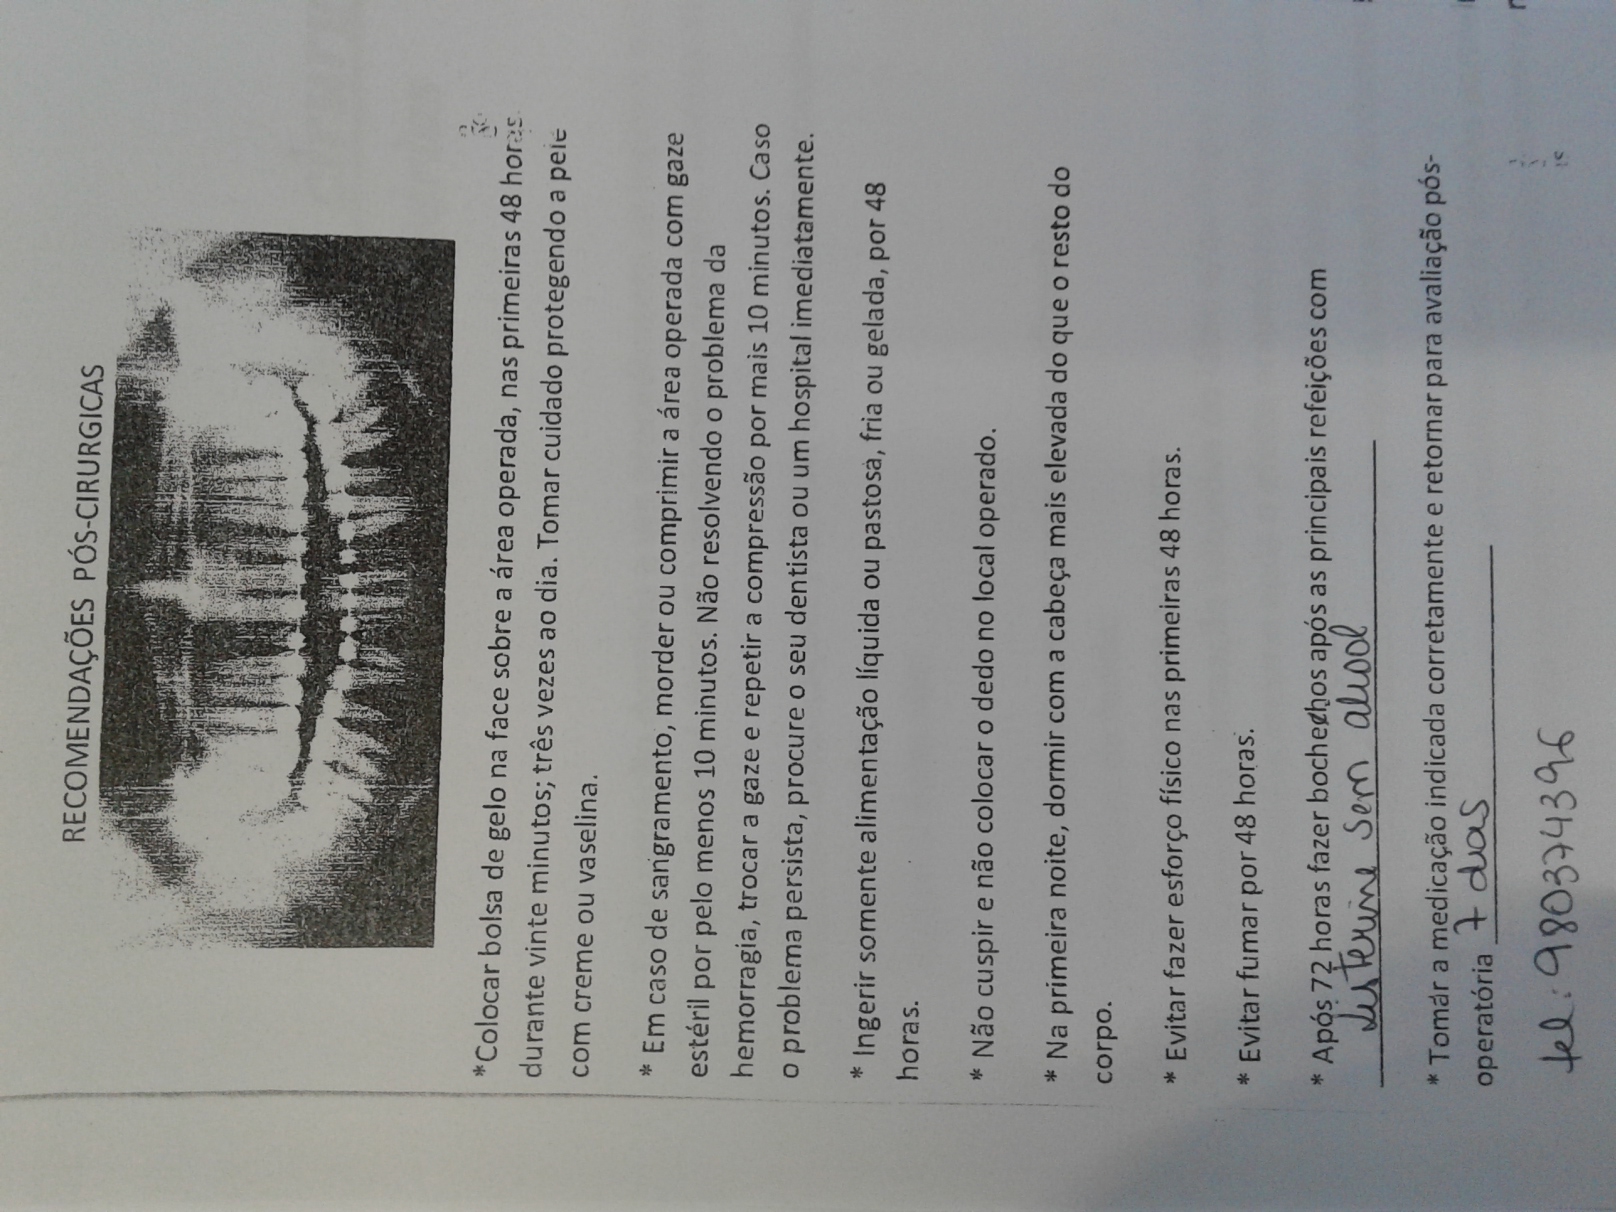 RECOMENDAÇÕES PÓS-CIRURGICAS
*Colocar bolsa de gelo na face sobre a área operada, nas primeiras 48 horas
durante vinte minutos; três vezes ao dia. Tomar cuidado protegendo a pele
com creme ou vaselina.
* Em caso de sangramento, morder ou comprimir a área operada com gaze
estéril por pelo menos 10 minutos. Não resolvendo o problema da
hemorragia, trocar a gaze e repetir a compressão por mais 10 minutos. Caso
o problema persista, procure o seu dentista ou um hospital imediatamente.
* Ingerir somente alimentação líquida ou pastosa, fria ou gelada, por 48
horas.
* Não cuspir e não colocar o dedo no local operado.
* Na primeira noite, dormir com a cabeça mais elevada do que o resto do
corpo.
* Evitar fazer esforço físico nas primeiras 48 horas.
* Evitar fumar por 48 horas.
* Após 72 horas fazer bochechos após as principais refeições com
Listerine sem alcool
* Tomar a medicação indicada corretamente e retornar para avaliação pós-
operatória 7 dias
tel: 980374396